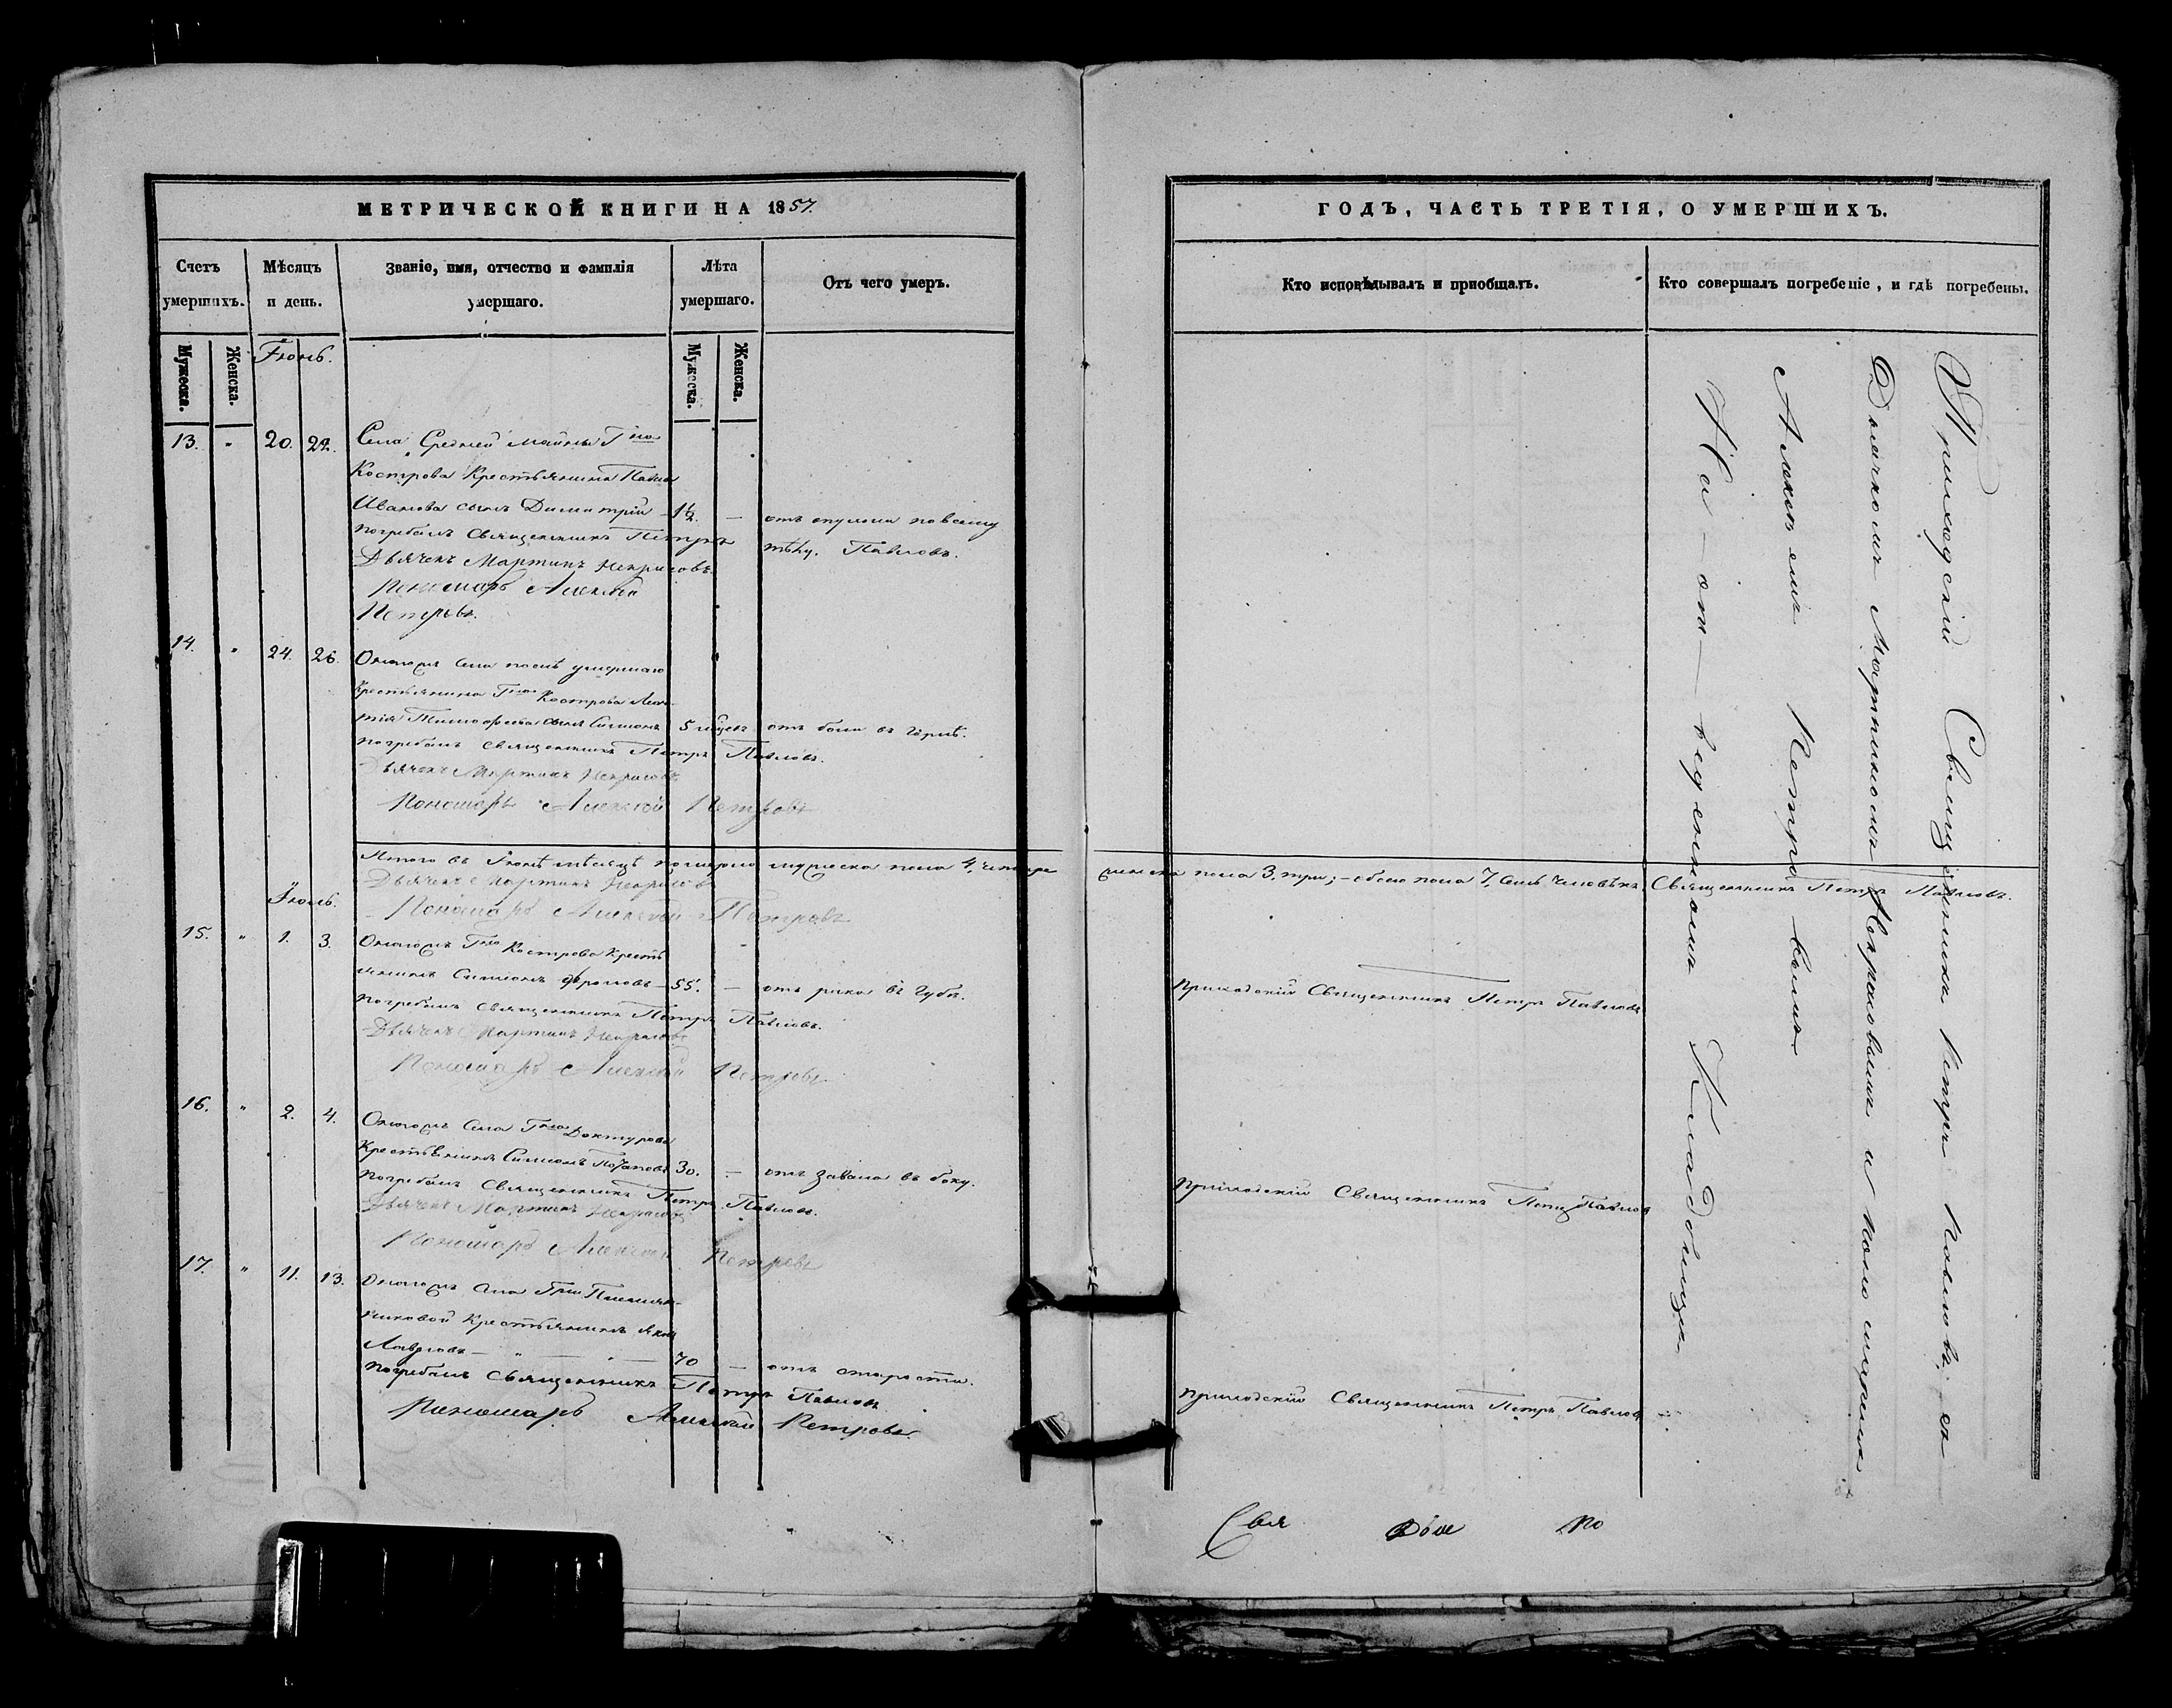 МЕТРИЧЕСКОЙ КНИГИ НА 1857.
Счетъ умершихъ.
Мѣсяцъ и день.
Званіе, имя, отчество и фамилія умершаго.
Лѣта умершаго.
Отъ чего умеръ.
Мужеска.
Женска.
Мужеска.
Женска.
Іюнь.
13. " 20. 22. Села Средней Майны Гна
Кострова Крестьянина Павла
Иванова сынъ Димитрій 1½. — отъ опухоли по всему
погребалъ Священникъ Петръ
тѣлу. Павловъ.
Дьячекъ Мартинъ Некрасовъ.
Пономарь Алексей
Петровъ.
14. " 24. 26. Оногожъ села послѣ умершаго
Крестьянина Гна Кострова
Тимофеева сынъ Симеонъ 5 мѣсец. отъ боли въ горлѣ.
погребалъ Священникъ Петръ Павловъ.
Дьячекъ Мартинъ Некрасовъ
Пономарь Алексей Петровъ
Итого въ Іюнѣ мѣсяцѣ померло мужеска пола 4, четыре
Дьячекъ Мартинъ Некрасовъ
Іюль.
Пономарь Алексей Петровъ
15. " 1. 3. Оногожъ Гна Кострова Крестья
янинъ Симеонъ Фроловъ — 55. — отъ рака въ губѣ.
погребалъ Священникъ Петръ Павловъ.
Дьячекъ Мартинъ Некрасовъ
Пономарь Алексей Петровъ
16. " 2. 4. Оногожъ села Гна Доктурова
Крестьянинъ Симеонъ Потаповъ 30. — отъ завала въ боку.
погребалъ Священникъ Петръ Павловъ.
Дьячекъ Мартинъ Некрасовъ
Пономарь Алексей Петровъ
17. " 11. 13. Оногожъ села Гжи
никовой Крестьянинъ Яковъ
Лавровъ — " — " — 70 — отъ старости.
погребалъ Священникъ Петръ Павловъ
Пономарь Алексей Петровъ
ГОДЪ, ЧАСТЬ ТРЕТІЯ, О УМЕРШИХЪ.
Кто исповѣдывалъ и приобщалъ.
Кто совершалъ погребеніе, и гдѣ погребены.
женска пола 3, три; — обоего пола 7, семь человѣкъ. Священникъ Петръ Павловъ.
Приходскій Священникъ Петръ Павловъ
Приходскій Священникъ Петръ Павловъ
Приходскій Священникъ Петръ Павловъ
Приходскій Священникъ Петръ Павловъ съ
Дьячкомъ Мартиномъ Некрасовымъ и Пономаремъ
Алексеемъ Петровымъ
На — от — веденномъ Кладбищѣ
Свя Дья По